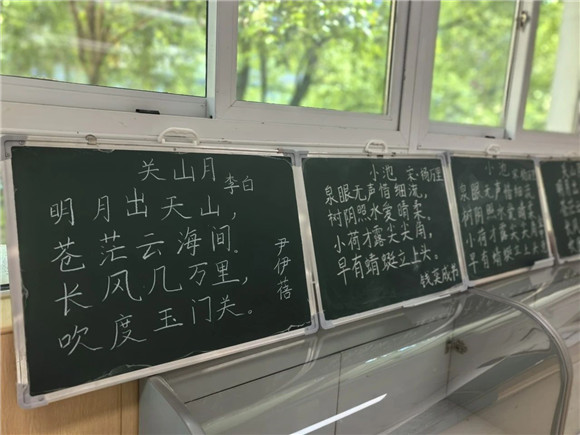 关山月
李白
明月出天山，
苍茫云海间。
长风几万里，
吹度玉门关。
尹伊蓓
小池 宋·杨万里
泉眼无声惜细流，
树阴照水爱晴柔。
小荷才露尖尖角，
早有蜻蜓立上头。
钱英成书
小池
泉眼无声惜细流，
树阴照水爱晴柔。
小荷才露尖尖角，
早有蜻蜓立上头。